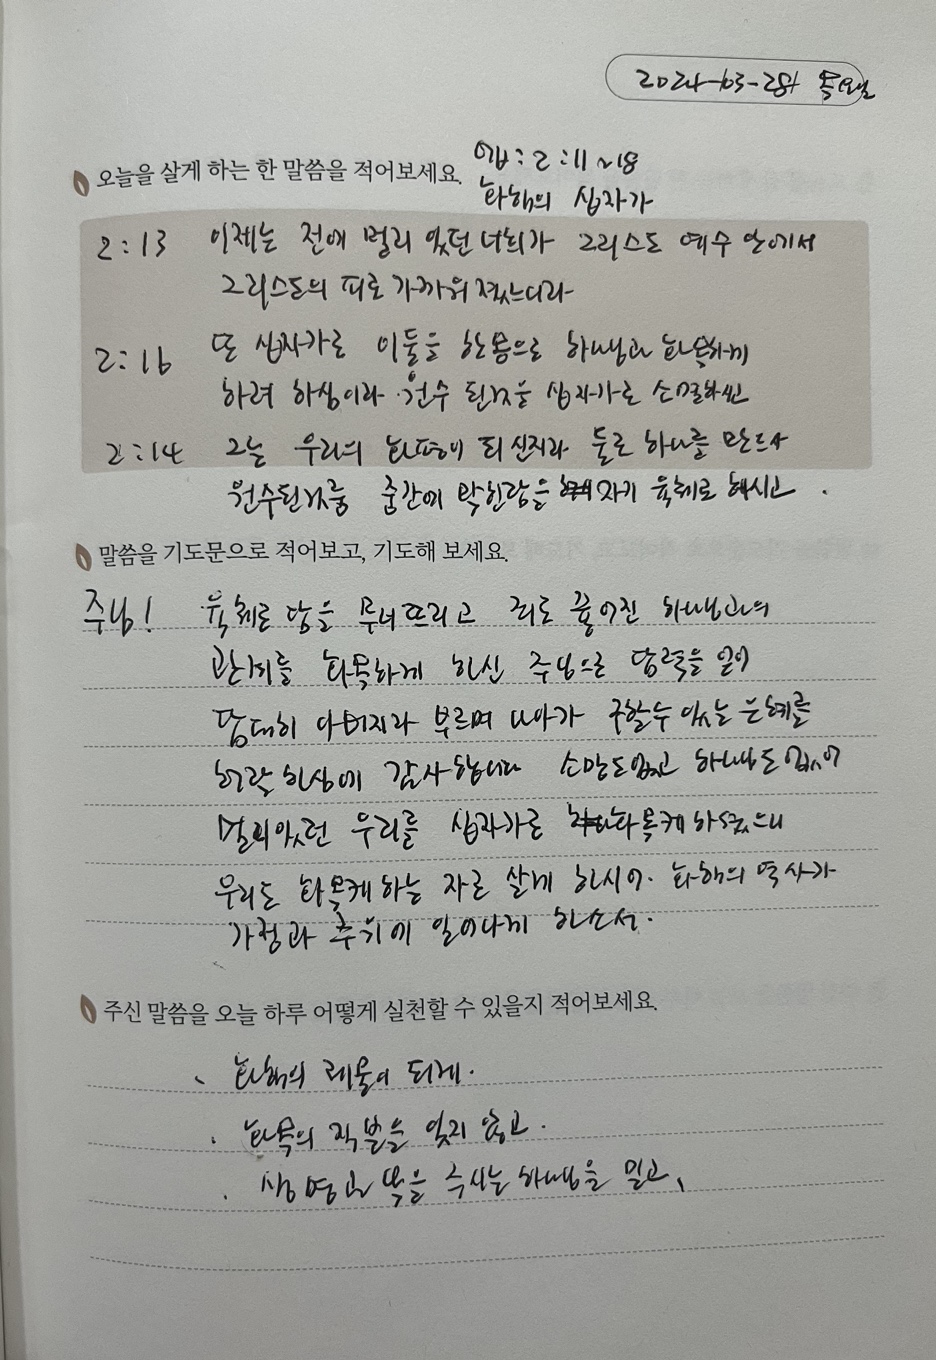 2024-03-28 목요일
오늘을 살게 하는 한 말씀을 적어보세요. 엡:2:11~18
화해의 십자가
2:13 이제는 전에 멀리 있던 너희가 그리스도 예수 안에서
그리스도의 피로 가까워 졌느니라
2:16 또 십자가로 이둘을 한몸으로 하나님과 화목하게
하려 하심이라 원수 된것을 십자가로 소멸하시고
2:14 그는 우리의 화평이 되신지라 둘로 하나를 만드사
원수된것 중간에 막힌담을 자기 육체로 허시고.
말씀을 기도문으로 적어보고, 기도해 보세요.
주님! 육체로 담을 무너뜨리고 죄로 끊어진 하나님과의
관계를 화목하게 하신 주님으로 담력을 얻어
담대히 아버지라 부르며 나아가 구할수 있는 은혜를
허락하심에 감사합니다 소망도없고 하나님도 없이
멀리있던 우리를 십자가로 화목케 하셨으니
우리도 화목케하는 자로 살게 하시어. 화해의 역사가
가정과 주위에 일어나게 하소서.
주신 말씀을 오늘 하루 어떻게 실천할 수 있을지 적어보세요.
、화해의 제물이 되게.
. 화목의 직분을 잊지 않고.
. 생명과 복을 주시는 하나님을 믿고、